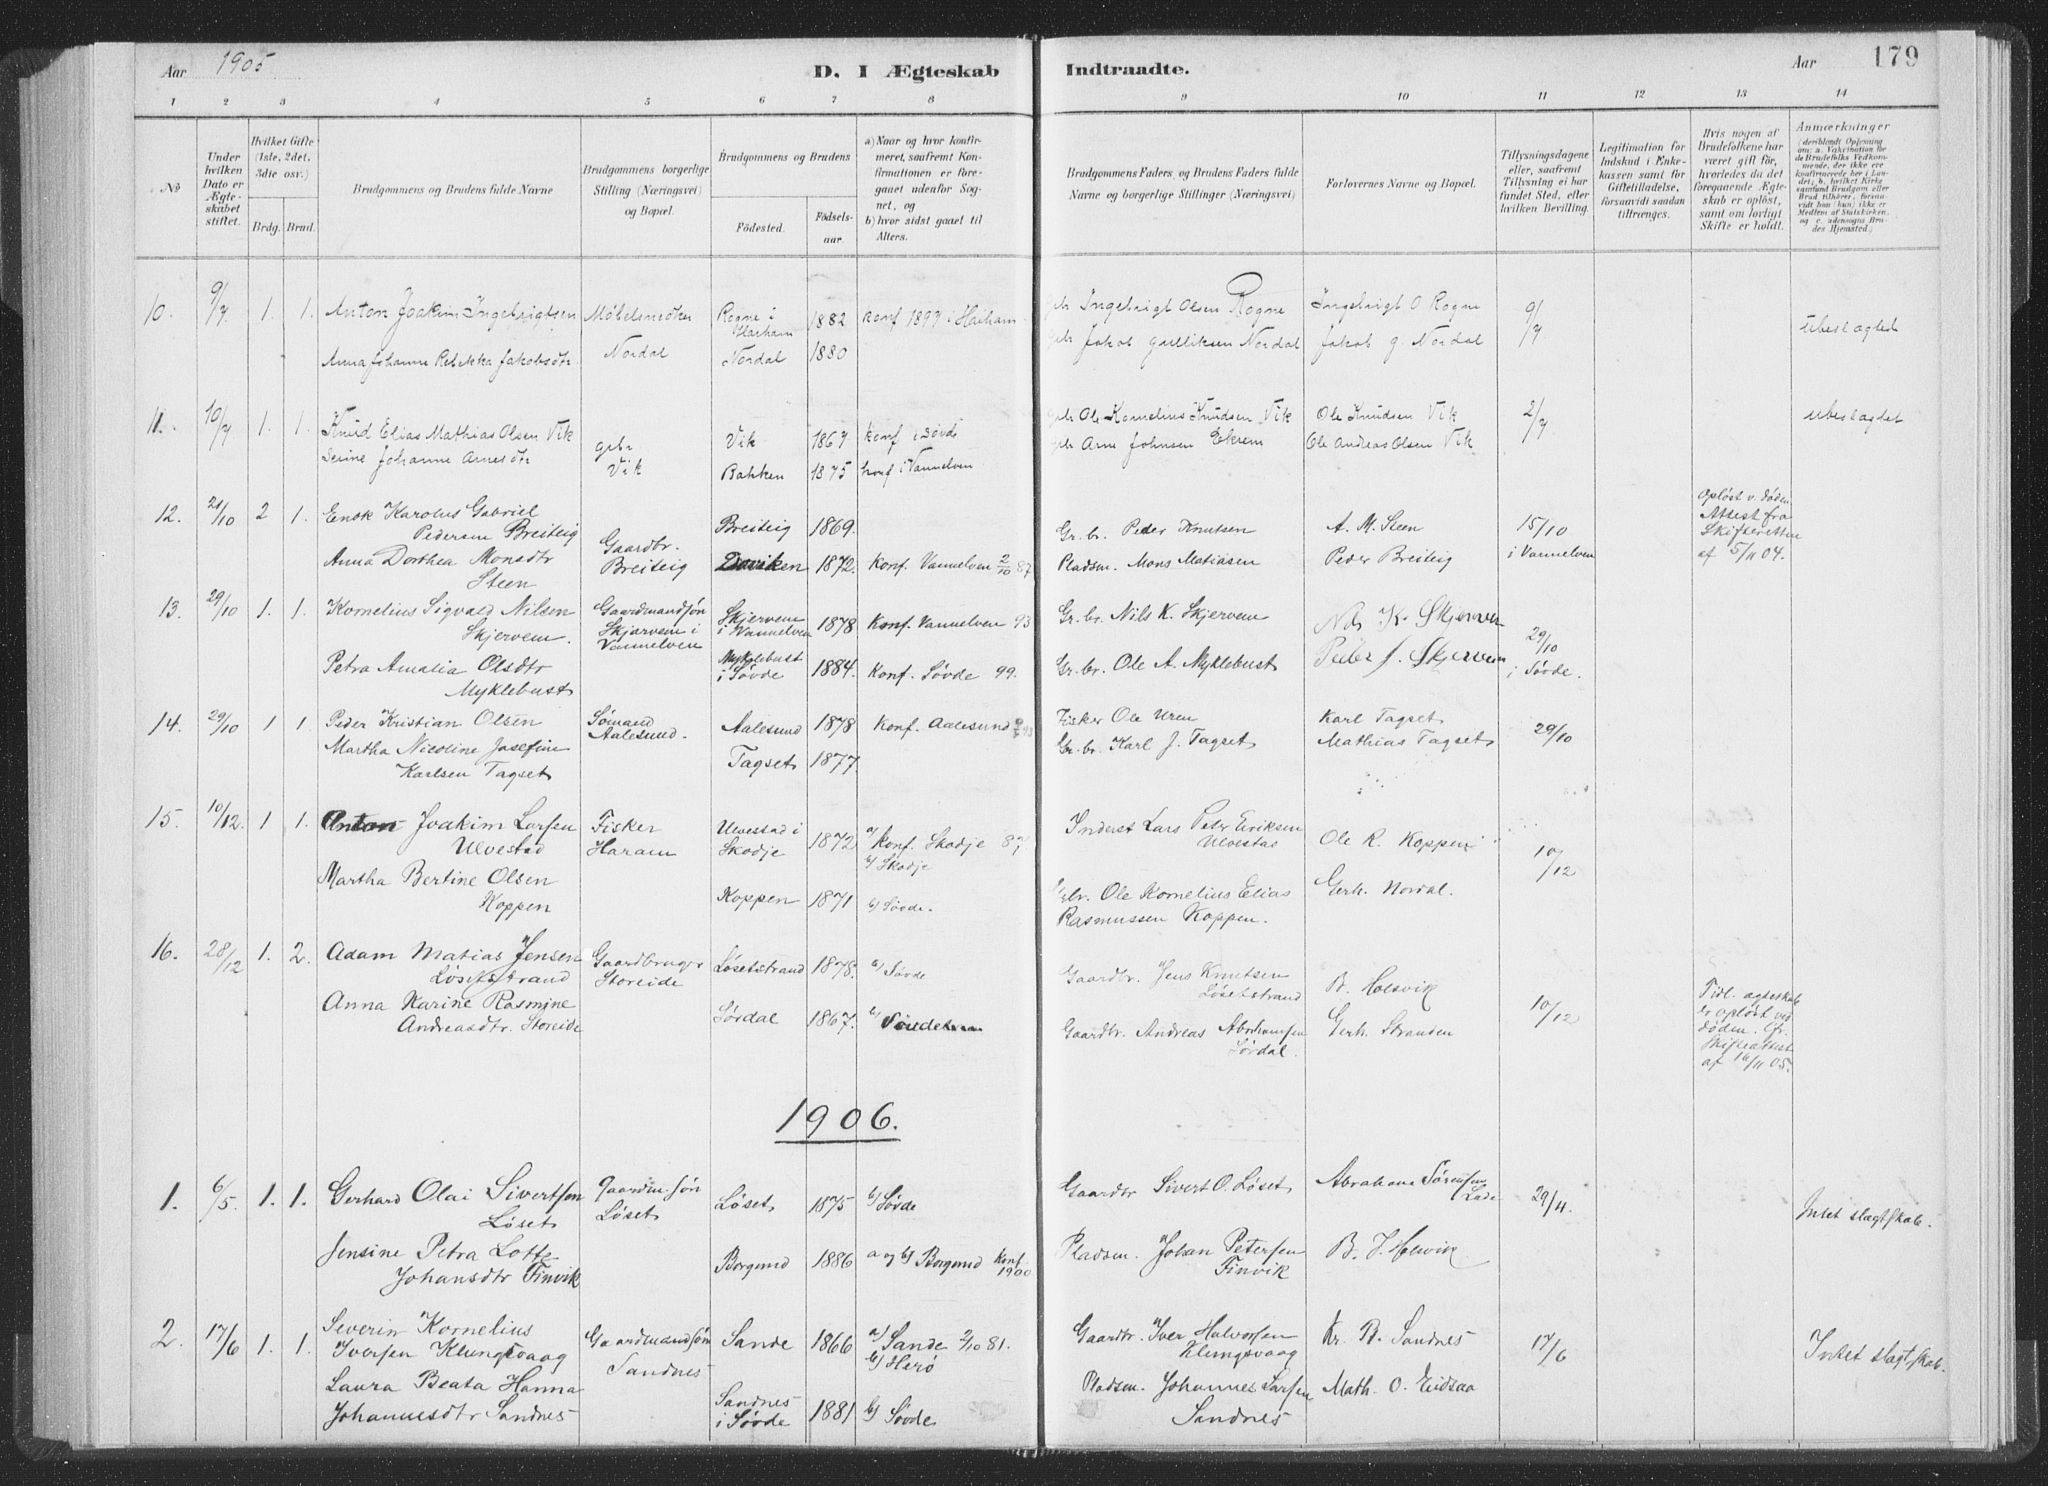 Aar 1905
D. I Ægteskab
Indtraadte.
Aar
179
1 2 3 4 5 6 7 8 9 10 11 12 13 14
No
Under hvilken Dato er Ægteskabet stiftet.
Hvilket Gifte (1ste, 2det, 3die osv.)
Brdg. Brud.
Brudgommens og Brudens fulde Navne
Brudgommens borgerlige Stilling (Næringsvei) og Bopæl.
Brudgommens og Brudens
Fødested. Fødselsaar.
a) Naar og hvor konfirmeret, saafremt Konfirmationen er foregaaet udenfor Sognet, og
b) hvor sidst gaaet til Alters.
Brudgommens Faders og Brudens Faders fulde Navne og borgerlige Stillinger (Næringsvei)
Forlovernes Navne og Bopæl.
Tillysningsdagene eller, saafremt Tillysning ei har fundet Sted, efter hvilken Bevilling.
Legitimation for Indskud i Enkekassen samt for Giftetilladelse, forsaavidt saadan tiltrænges.
Hvis nogen af Brudefolkene har været gift før, hvorledes da det foregaaende Ægteskab er opløst, samt om lovligt Skifte er holdt.
Anmærkninger
10. 9/7 1. 1. Anton Joakim Ingebrigtsen Møbelsnedker Rogne i Haram 1882 konf 1897 i Haram Ingebrigt Olsen Rogne Ingebrigt O Rogne 9/7 ubeslagtet
Anna Johanne Rebekka Jakobsdtr Nordal Nordal 1880 Jakob Gulliksen Nordal Jakob G. Nordal
11. 10/7 1. 1. Knud Elias Mathias Olsen Vik gbr Vik 1867 konf i Søvde gbr Ole Kornelius Knudsen Vik Ole Knudsen Vik 2/7 ubeslagtet
Serine Johanne Arnesdtr Vik Bakken 1875 konf i Vannelven gbr Arne Johnsen Ekrem Ole Andreas Olsen Vik
12. 21/10 2 1. Enok Karolus Gabriel
Pedersen Breiteig Gaardbr. Breiteig Breiteig 1869. Gr. br. Peder Knutsen A. M. Steen 15/10 i Vannelven
Opløst v. døden. Attest fra Skifteretten af 5/11 04.
Anna Dorthea Monsdtr
Steen Daviken 1872. Konf. Vannelven 2/10 87 Pladsm. Mons Matiasen Peder Breiteig
13. 29/10 1. 1. Kornelius Sigvald Nilsen
Skjervem. Gaardmandsøn Skjervem i Vannelven Skjervem i Vannelven 1878 Konf. Vannelven 93 Gr. br. Nils K. Skjervem Nils K. Skjervem 29/10 i Søvde.
Petra Amalia Olsdtr
Myklebust Myklebust i Søvde 1884. Konf. Søvde 99. Gr. br. Ole A. Myklebust Peder J. Skjervem
14. 29/10 1 1 Peder Kristian Olsen Sømand Aalesund. Aalesund 1878 Konf. Aalesund Fisker Ole Uren Karl Tagset 29/10
Martha Nicoline Josefine
Karlsen Tagset Tagset 1877. Gr. br. Karl J. Tagset Mathias Tagset
15. 10/12. 1 1. Anton Joakim Larsen
Ulvestad Fisker Haram Ulvestad i Skodje 1872 a) konf. Skodje 87. b) Skodje Inderst Lars Peter Eriksen Ulvestad Ole R. Koppen 10/12
Martha Bertine Olsen
Koppen Koppen 1871 b) Søvde. Gbr. Ole Kornelius Elias Rasmussen Koppen. Gerh. Nordal.
16. 28/12 1. 2. Adam Matias Jensen
Løsetstrand Gaardbruger Storeide Løsetstrand 1878. b) Søvde Gaardbr. Jens Knutsen Løsetstrand B. Helsvik 10/12
Tidl. ægteskab er opløst ved døden. Cfr. Skifteattest af 16/11 05.
Anna Karine Rasmine
Andreasdtr. Storeide Sørdal 1867. b) Gaardbr. Andreas Abrahamsen Sørdal. Gerh. Stranden
1906.
1. 6/5. 1. 1. Gerhard Olai Sivertsen
Løset Gaardm. søn Løset Løset 1875 b) Søvde Gaardbr Sivert O. Løset Abraham Sørensen Lade 29/4. Intet slagtskab.
Jensine Petra Lotte
Johansdtr Finvik Borgund 1886 a og b) Borgund konf. 1900 Pladsm. Johan Petersen Finvik
2. 17/6 1. 1. Severin Kornelius
Iversen Klungsvaag Gaardmandsøn Sandnes Sande 1866 a) Sande 2/10 81. b) Herø Gaardbr. Iver Halvorsen Klungsvaag Kr. B. Sandnes 17/6 Intet slagtskab.
Laura Beata Hanna
Johannesdtr Sandnes Sandnes i Søvde 1881 b) Søvde Pladsm. Johannes Larsen Sandnes Math. O. Eidsaa